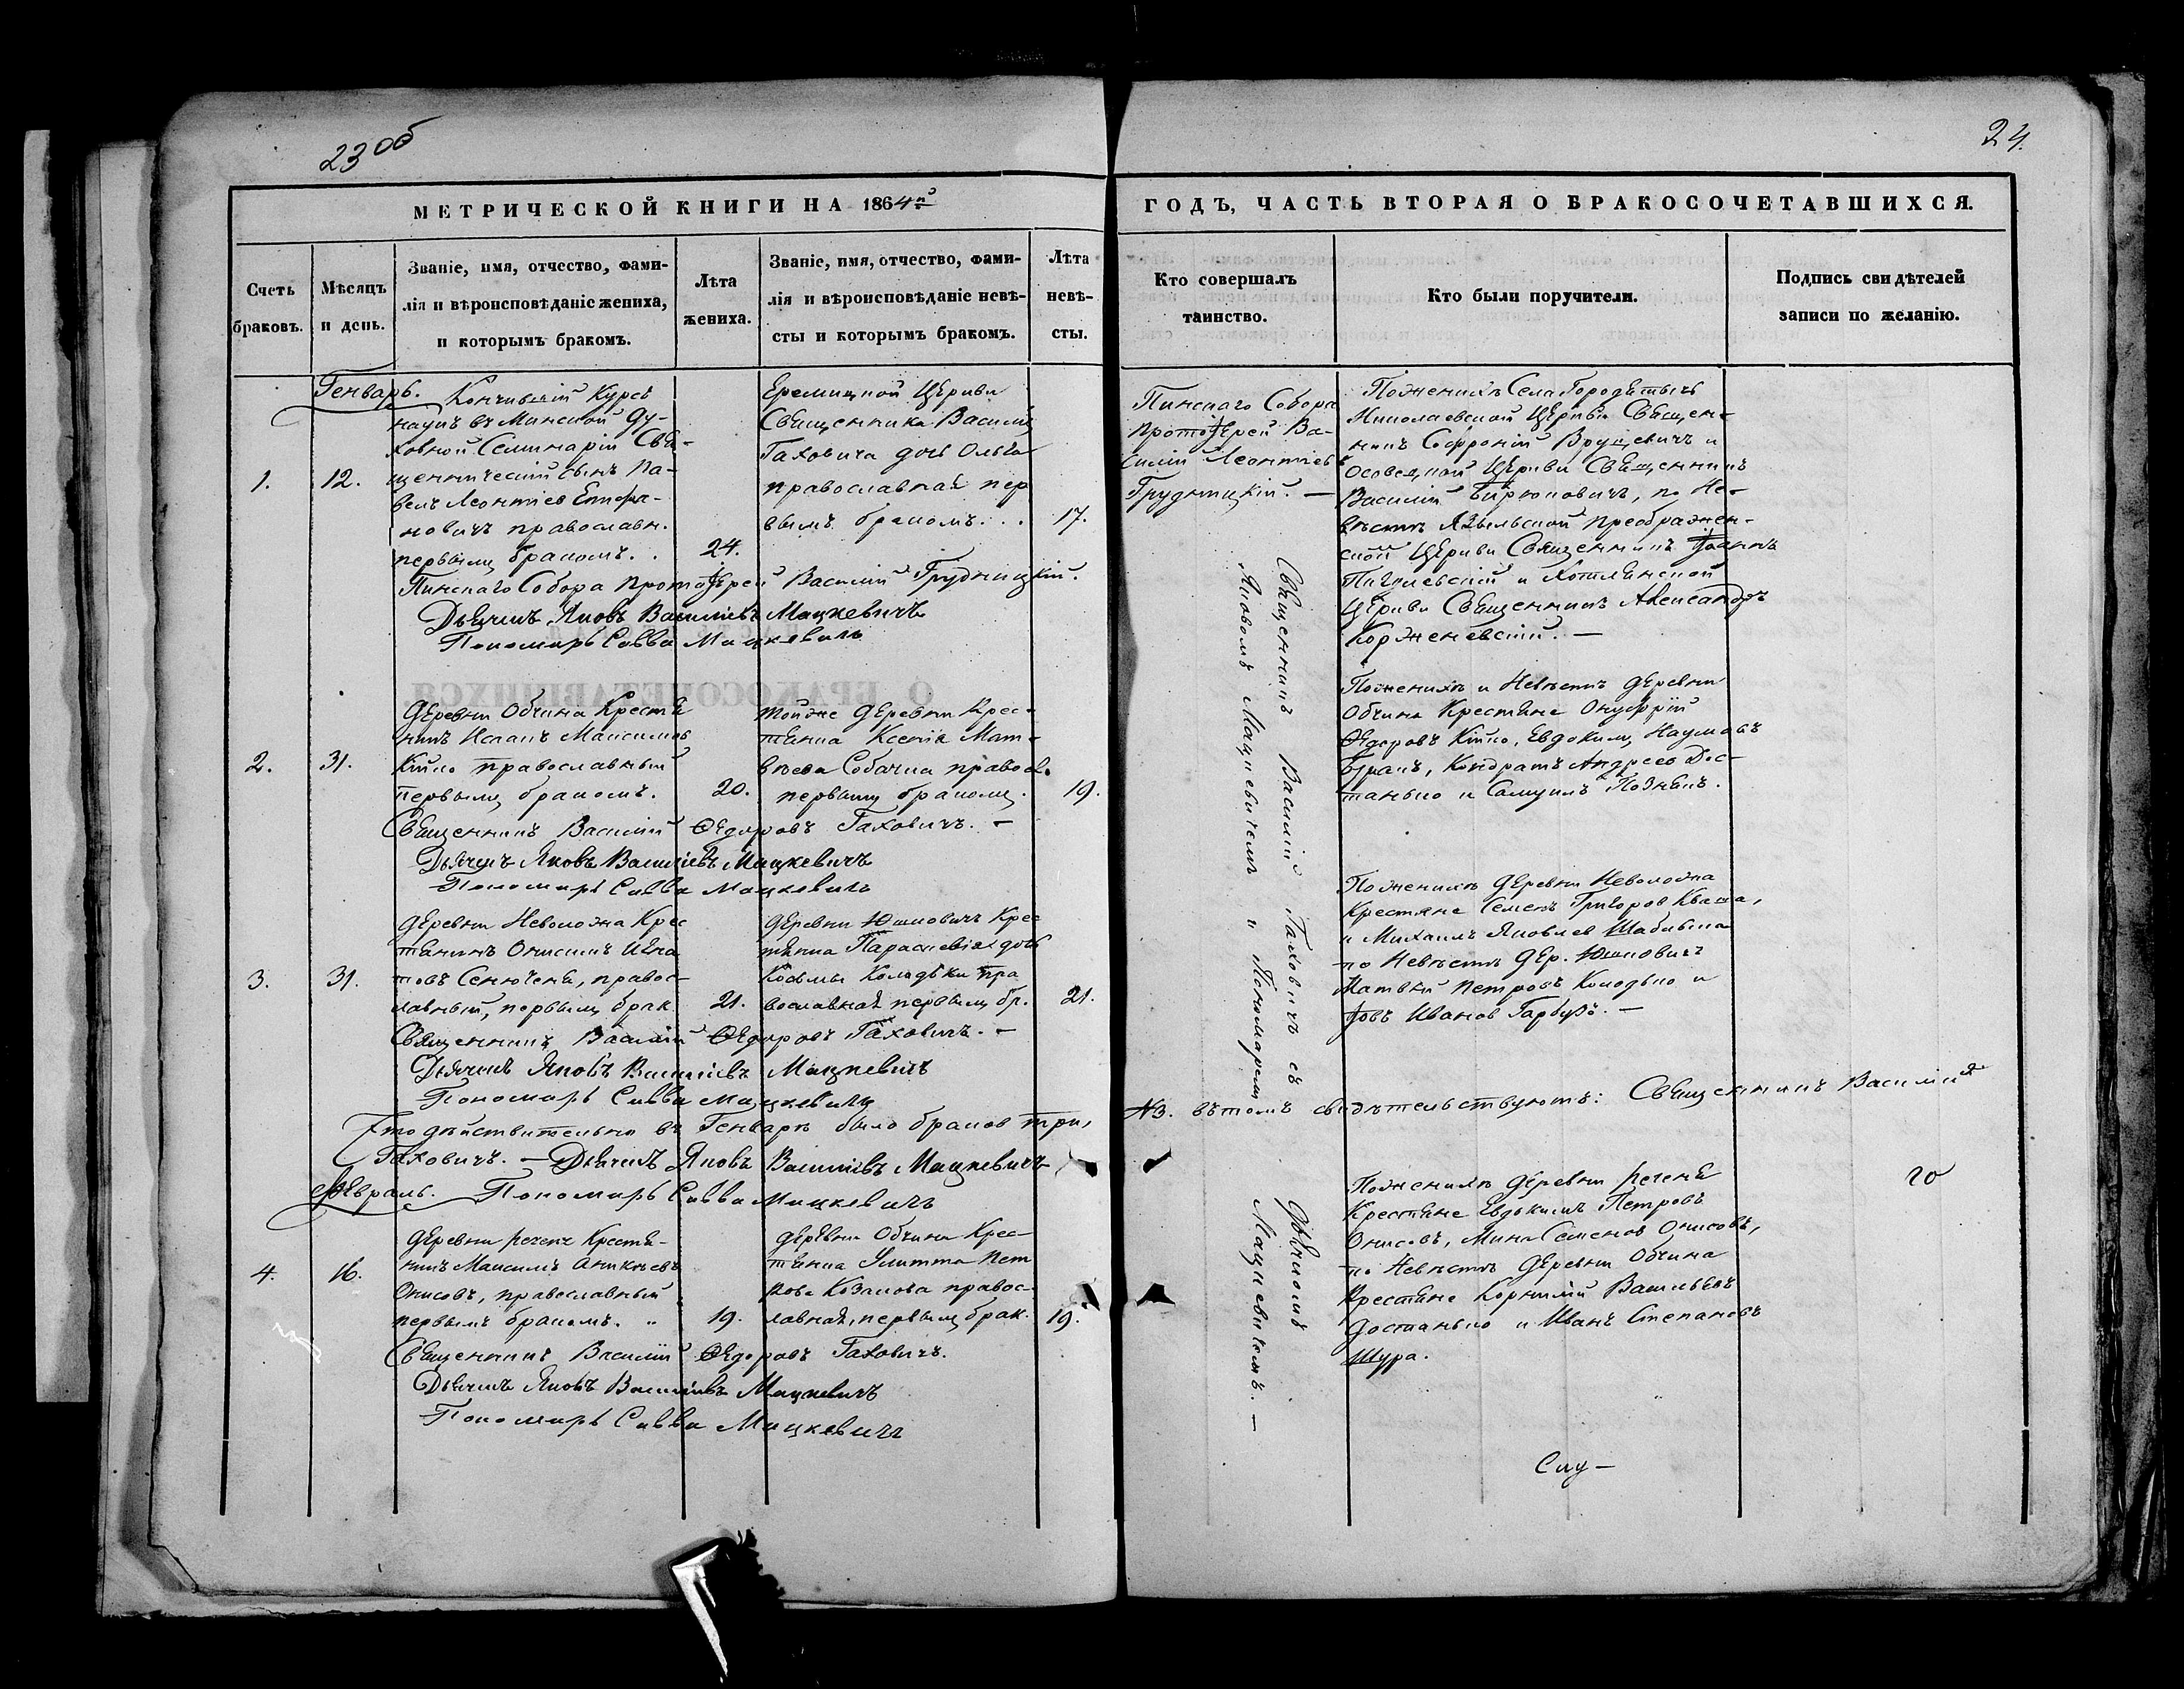 23 об
24.
МЕТРИЧЕСКОЙ КНИГИ НА 1864й
ГОДЪ, ЧАСТЬ ВТОРАЯ О БРАКОСОЧЕТАВШИХСЯ.
Счетъ
браковъ.
Мѣсяцъ
и день.
Званіе, имя, отчество, фами-
лія и вѣроисповѣданіе жениха,
и которымъ бракомъ.
Лѣта
жениха.
Званіе, имя, отчество, фами-
лія и вѣроисповѣданіе невѣ-
сты и которымъ бракомъ.
Лѣта
невѣ-
сты.
Кто совершалъ
таинство.
Кто были поручители.
Подпись свидѣтелей
записи по желанію.
Генварь.
1.
12.
Кончившій Курсъ
наукъ въ Минской Ду-
ховной Семинаріи Свя-
щенническій сынъ Па-
велъ Леонтіев Епифа-
новичъ православн.
первымъ бракомъ. .
24.
Еремицкой Церкви
Священника Василія
Таховича дочь Ольга
православная пер
вымъ бракомъ. . .
17.
Пинскаго Собора
Протоіерей Ва-
силій Леонтіевъ
Грудницкій. —
По женихѣ Села Городятычъ
Николаевской Церкви Священ-
никъ Софроній Врущевичъ и
Осовецкой Церкви Священникъ
Василій Бирюковичъ, по Не-
вѣстѣ Язвильской Преображен-
ской Церкви Священникъ Іоаннъ
Пигулевскій и Хотлянской
Церкви Священникъ Александръ
Корженевскій. —
Пинскаго Собора Протоіерей Василій Грудницкій.
Дьячекъ Яковъ Василіевъ Мацкевичъ
Пономарь Савва Мацкевичъ
2.
31.
Деревни Обчина Крестя
нинъ Исаакъ Максимов
Кійко православный
первымъ бракомъ.
20.
тойже деревни Крес-
тянка Ксенія Мат-
вѣева Собачка правосл.
первымъ бракомъ.
19.
По женихѣ и Невѣстѣ деревни
Обчина Крестяне Онуфрій
Ѳедоровъ Кійко, Евдокимъ Наумовъ
Бракъ, Кондратъ Андреев Дос-
танько и Самуилъ Познякъ.
Священникъ Василій Ѳедоровъ Таховичъ. —
Дьячекъ Яковъ Василіевъ Мацкевичъ
Пономарь Савва Мацкевичъ
3.
31.
Деревни Неволожа Крес
тянинъ Онисимъ Игна
товъ Сенюченя, правос-
лавный, первымъ брак.
21.
деревни Юшковичъ Крес
тянка Параскевія дочь
Козьмы Колодьки пра
вославная первымъ бр.
21.
По женихѣ деревни Неволожа
Крестяне Семенъ Григоров Кваша,
и Михаилъ Яковлев
по Невѣстѣ дер. Юшковичъ
Матвѣй Петровъ Колодько и
Іовъ Иванов Гарбузъ. —
Священникъ Василій Ѳедоровъ Таховичъ. —
Дьячекъ Яковъ Василіевъ Мацкевичъ
Пономарь Савва Мацкевичъ
Священникъ Василій Таховичъ съ Дьячкомъ
Яковомъ Мацкевичемъ и Пономаремъ Мацкевичемъ. —
Что дѣйствительно въ Генварѣ было браков три,
№3. вътомъ свидѣтельствуютъ: Священникъ Василій
Таховичъ. — Дьячекъ Яковъ Василіевъ Мацкевичъ
Февраль. Пономарь Савва Мацкевичъ
4.
16.
Деревни Речень Крестя-
нинъ Максимъ Аникѣевъ
Онисовъ, православный
первымъ бракомъ. „
19.
деревни Обчина Крес-
тянка Улитта Пет
рова Козакова правос-
лавная, первымъ брак.
19.
По женихѣ деревни Реченя
Крестяне Евдокимъ Петровъ
Онисовъ, Мина Семеновъ Онисовъ,
по Невѣстѣ деревни Обчина
Крестяне Корнилій Васильевъ
Достанько и Иванъ Степановъ
Шура.
Священникъ Василій Ѳедоровъ Таховичъ.
Дьячекъ Яковъ Василіевъ Мацкевичъ
Пономарь Савва Мацкевичъ